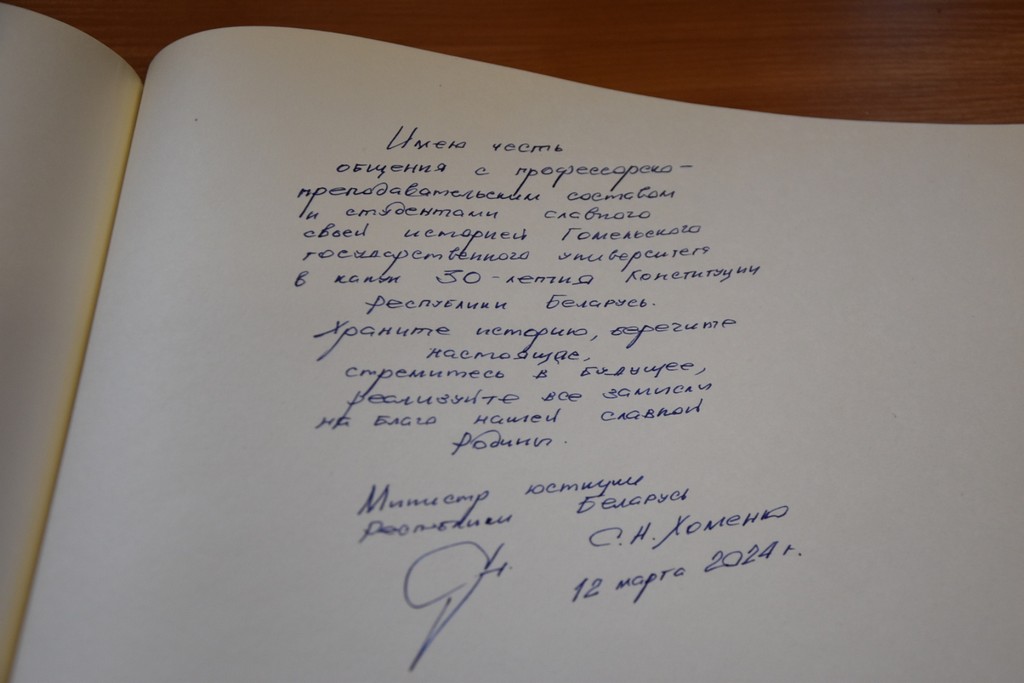 Имею честь
общения с профессорско-
преподавательским составом
и студентами славного
своей историей Гомельского
государственного университета
в канун 30-летия Конституции
Республики Беларусь.
Храните историю, берегите
настоящее,
стремитесь в будущее,
реализуйте все замыслы
на благо нашей славной
Родины.
Министр юстиции
Республики Беларусь
С.Н. Хоменко
12 марта 2024 г.